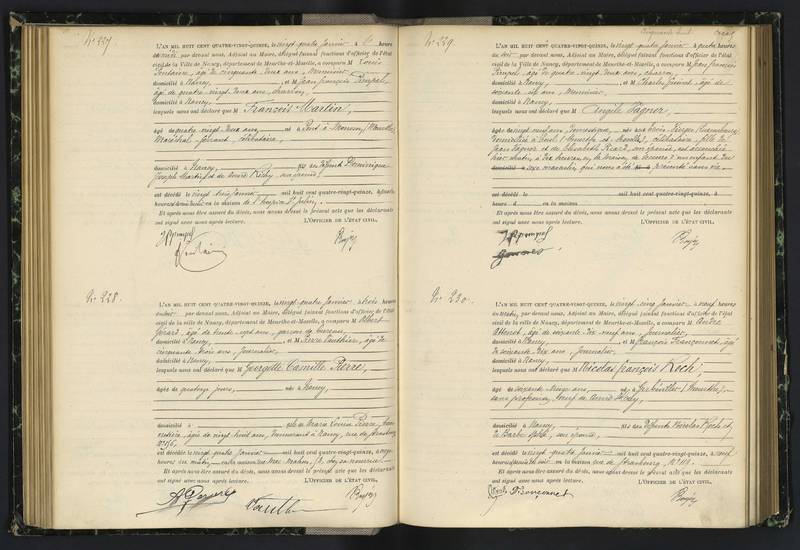 N° 227
L'AN MIL HUIT CENT QUATRE-VINGT-QUINZE, le vingt quatre janvier à heures
par devant nous, Adjoint au Maire, délégué faisant fonctions d'officier de l'état
civil de la Ville de Nancy, département de Meurthe-et-Moselle, a comparu M Louis
Fontaine, âgé de cinquante deux ans, Menuisier
domicilié à Nancy, et M Jean François Pimpel,
âgé de quatre vingt deux ans, charron,
domicilié à Nancy,
lesquels nous ont déclaré que M François Martin,
âgé de quatre vingt deux ans, né à Pont à Mousson (Meurthe)
Maréchal ferrant, célibataire,
domicilié à Nancy, fils des défunts Dominique
Joseph Martin, et de
est décédé le vingt trois janvier mil huit cent quatre-vingt-quinze, à
heures en la maison de l'hospice St Julien
Et après nous être assuré du décès, nous avons dressé le présent acte que les déclarants
ont signé avec nous après lecture. L'OFFICIER DE L'ÉTAT CIVIL,
JF Pimpel
Fontaine
N° 228.
L'AN MIL HUIT CENT QUATRE-VINGT-QUINZE, le vingt quatre janvier à trois heures
du soir par devant nous, Adjoint au Maire, délégué faisant fonctions d'officier de l'état
civil de la ville de Nancy, département de Meurthe-et-Moselle, a comparu M Albert
Gérard, âgé de trente sept ans, garçon de bureau,
domicilié à Nancy, et M Pierre Vauthier, âgé de
cinquante trois ans, journalier,
domicilié à Nancy,
lesquels nous ont déclaré que M Georgette Camille Pierre,
âgée de quatorze jours, née à Nancy,
domicilié à fille de Marie Louise Pierre,
âgée de vingt huit ans, demeurant à Nancy, rue de Strasbourg
est décédée le vingt quatre janvier mil huit cent quatre-vingt-quinze, à onze
heures du matin en la maison rue Mac Mahon, chez sa nourrice
Et après nous être assuré du décès, nous avons dressé le présent acte que les déclarants
ont signé avec nous après lecture. L'OFFICIER DE L'ÉTAT CIVIL,
cinquante huit
N° 229.
L'AN MIL HUIT CENT QUATRE-VINGT-QUINZE, le vingt quatre janvier à quatre heures
du soir par devant nous, Adjoint au Maire, délégué faisant fonctions d'officier de l'état
civil de la Ville de Nancy, département de Meurthe-et-Moselle, a comparu M Jean François
Pimpel, âgé de quatre vingt deux ans, charron,
domicilié à Nancy, et M Charles âgé de
soixante six ans, Menuisier,
domicilié à Nancy,
lesquels nous ont déclaré que M Angèle Vagner,
âgée de vingt neuf ans, domestique, née à
domiciliée à Toul (Meurthe et Moselle), célibataire, fille de
Jean Vagner et de Elisabeth Ricard, son épouse, est accouchée
hier matin, à dix heures, en la maison de secours d'un enfant du
sexe masculin, qui nous a été présenté sans vie.
est décédé le mil huit cent quatre-vingt-quinze, à
heures d en la maison
Et après nous être assuré du décès, nous avons dressé le présent acte que les déclarants
ont signé avec nous après lecture. L'OFFICIER DE L'ÉTAT CIVIL,
JF Pimpel
N° 230.
L'AN MIL HUIT CENT QUATRE-VINGT-QUINZE, le vingt cinq janvier à neuf heures
du matin, par devant nous, Adjoint au Maire, délégué faisant fonctions d'officier de l'état
civil de la ville de Nancy, département de Meurthe-et-Moselle, a comparu M André
âgé de soixante dix neuf ans, journalier,
domicilié à Nancy, et M François Françonnet, âgé
de soixante dix ans, journalier,
domicilié à Nancy,
lesquels nous ont déclaré que M Nicolas François Koch,
âgé de soixante treize ans, né à Gerbéviller (Meurthe),
sans profession, veuf de
domicilié à Nancy, fils des défunts Nicolas Koch et
de Barbe son épouse,
est décédé le vingt quatre janvier mil huit cent quatre-vingt-quinze, à neuf
heures du soir en la maison rue de Strasbourg, N° 111.
Et après nous être assuré du décès, nous avons dressé le présent acte que les déclarants
ont signé avec nous après lecture. L'OFFICIER DE L'ÉTAT CIVIL,